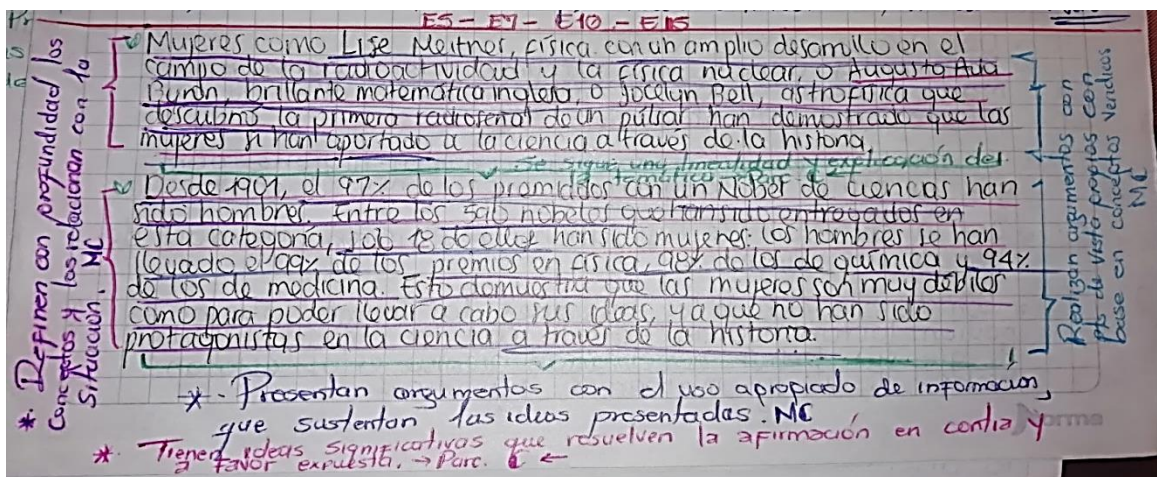 E5 - E7 - E10 - E15
Mujeres como Lise Meitner, física con un amplio desarrollo en el
campo de la radioactividad y la física nuclear, o Augusta Ada
Byron, brillante matemática inglesa, o Jocelyn Bell, astrofísica que
descubrió la primera radioseñal de un púlsar han demostrado que las
mujeres sí han aportado a la ciencia a través de la historia,
Se sigue una linealidad y explicación de
la temática. Parc
Desde 1901, el 97% de los premidos con un Nobel de ciencas han
sido hombres. Entre los nobeles que han sido entregados en
esta categoría, solo 18 de ellos han sido mujeres: los hombres se han
llevado el 99% de los premios en física, 98% de los de química y 94%
de los de medicina. Esto demuestra que las mujeres son muy débiles
como para poder llevar a cabo sus ideas, ya que no han sido
protagonistas en la ciencia a través de la historia.
*. Definen con profundidad los
conceptos y los relacionan con la
situación. MC
Realizan argumentos con
pts de vista propios con
base en conceptos verídicos
MC
*. Presentan argumentos con el uso apropiado de informacion,
que sustentan las ideas presentadas. MC
*. Tienen ideas significativas que resuelven la afirmación en contra y
a favor expuesta. → Parc. C ←
Norma